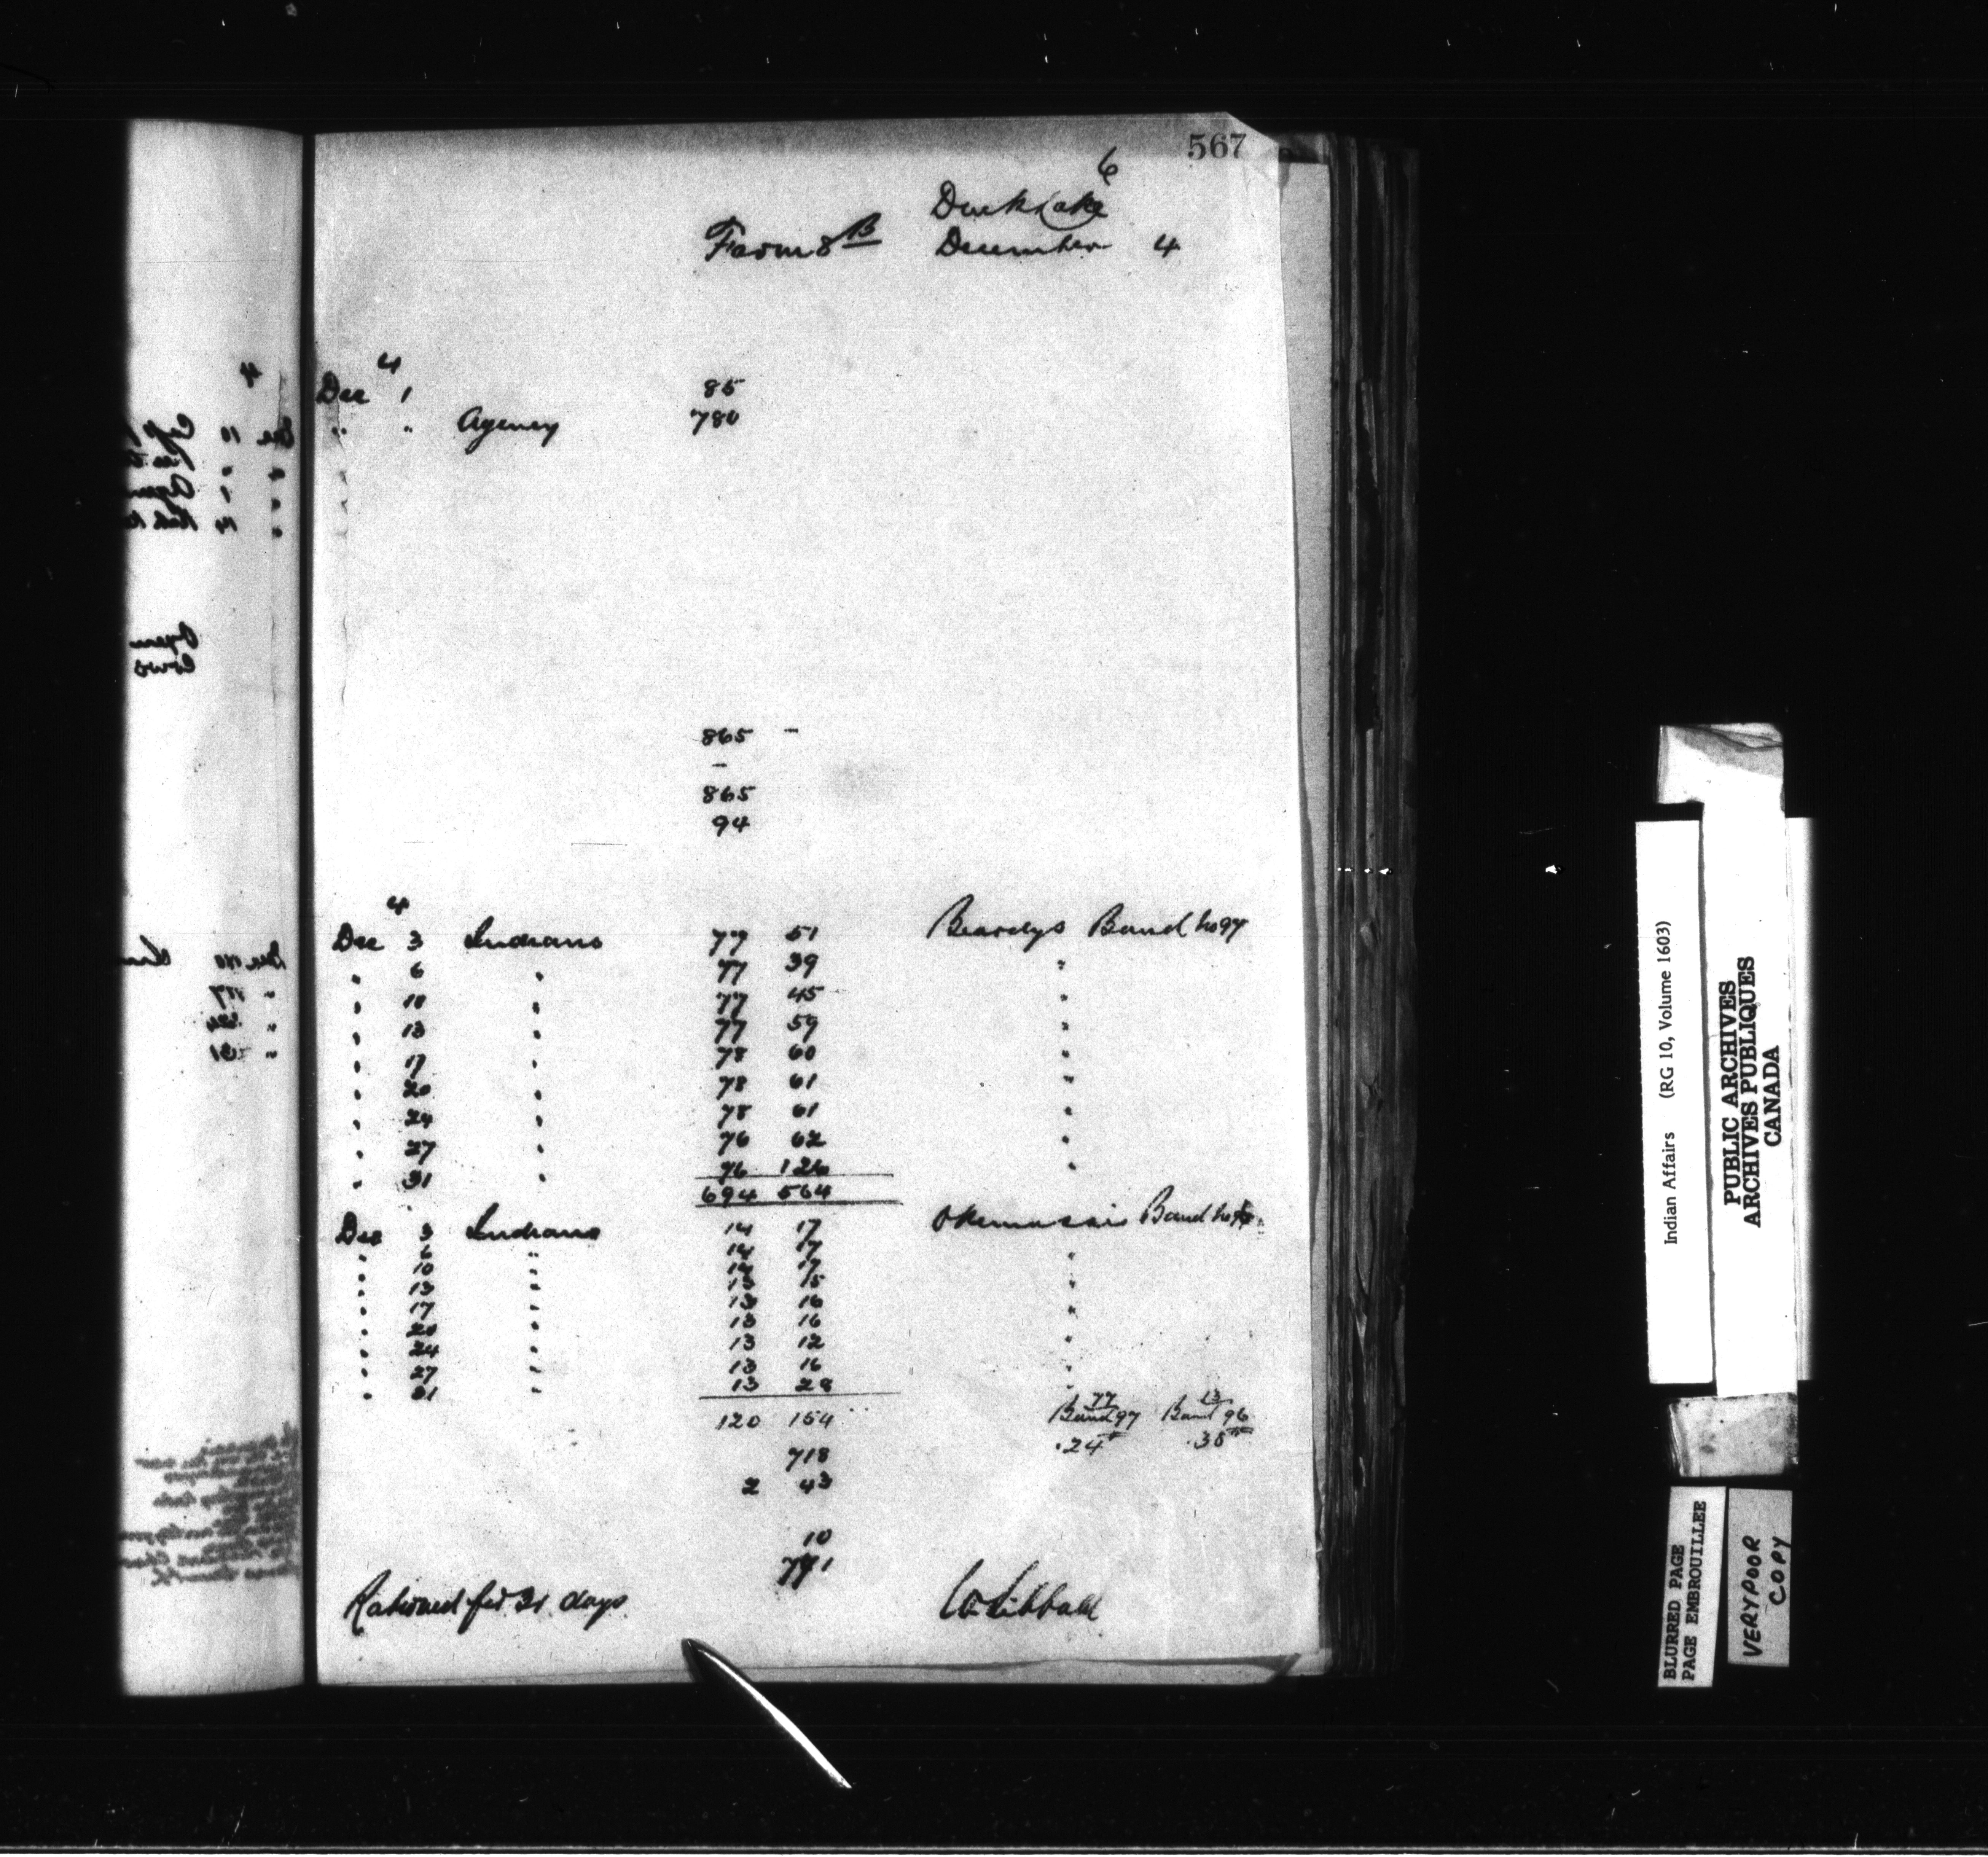 567
6
Duck Lake
Farm 8 B December 4
4
Dec 1 85
" " Agency 780
865 -
-
865
94
4
Dec 3 Indians 77 51 Beardys Band No 97
" 6 " 77 39 "
" 10 " 77 45 "
" 13 " 77 59 "
" 17 " 78 60 "
" 20 " 78 61 "
" 24 " 78 61 "
" 27 " 76 62 "
" 31 " 76 126 "
694 564
Dec 3 Indians 14 17 Okemassis Band No
" 6 " 14 17 "
" 10 " 14 17 "
" 13 " 13 15 "
" 17 " 13 16 "
" 20 " 13 16 "
" 24 " 13 12 "
" 27 " 13 16 "
" 31 " 13 28 "
77 13
120 154 Band 97 Band 96
.24 .38
718
2 43
10
771
Rationed for 31 days
Indian Affairs (RG 10, Volume 1603)
PUBLIC ARCHIVES
ARCHIVES PUBLIQUES
CANADA
BLURRED PAGE
PAGE EMBROUILLEE
VERY POOR
COPY